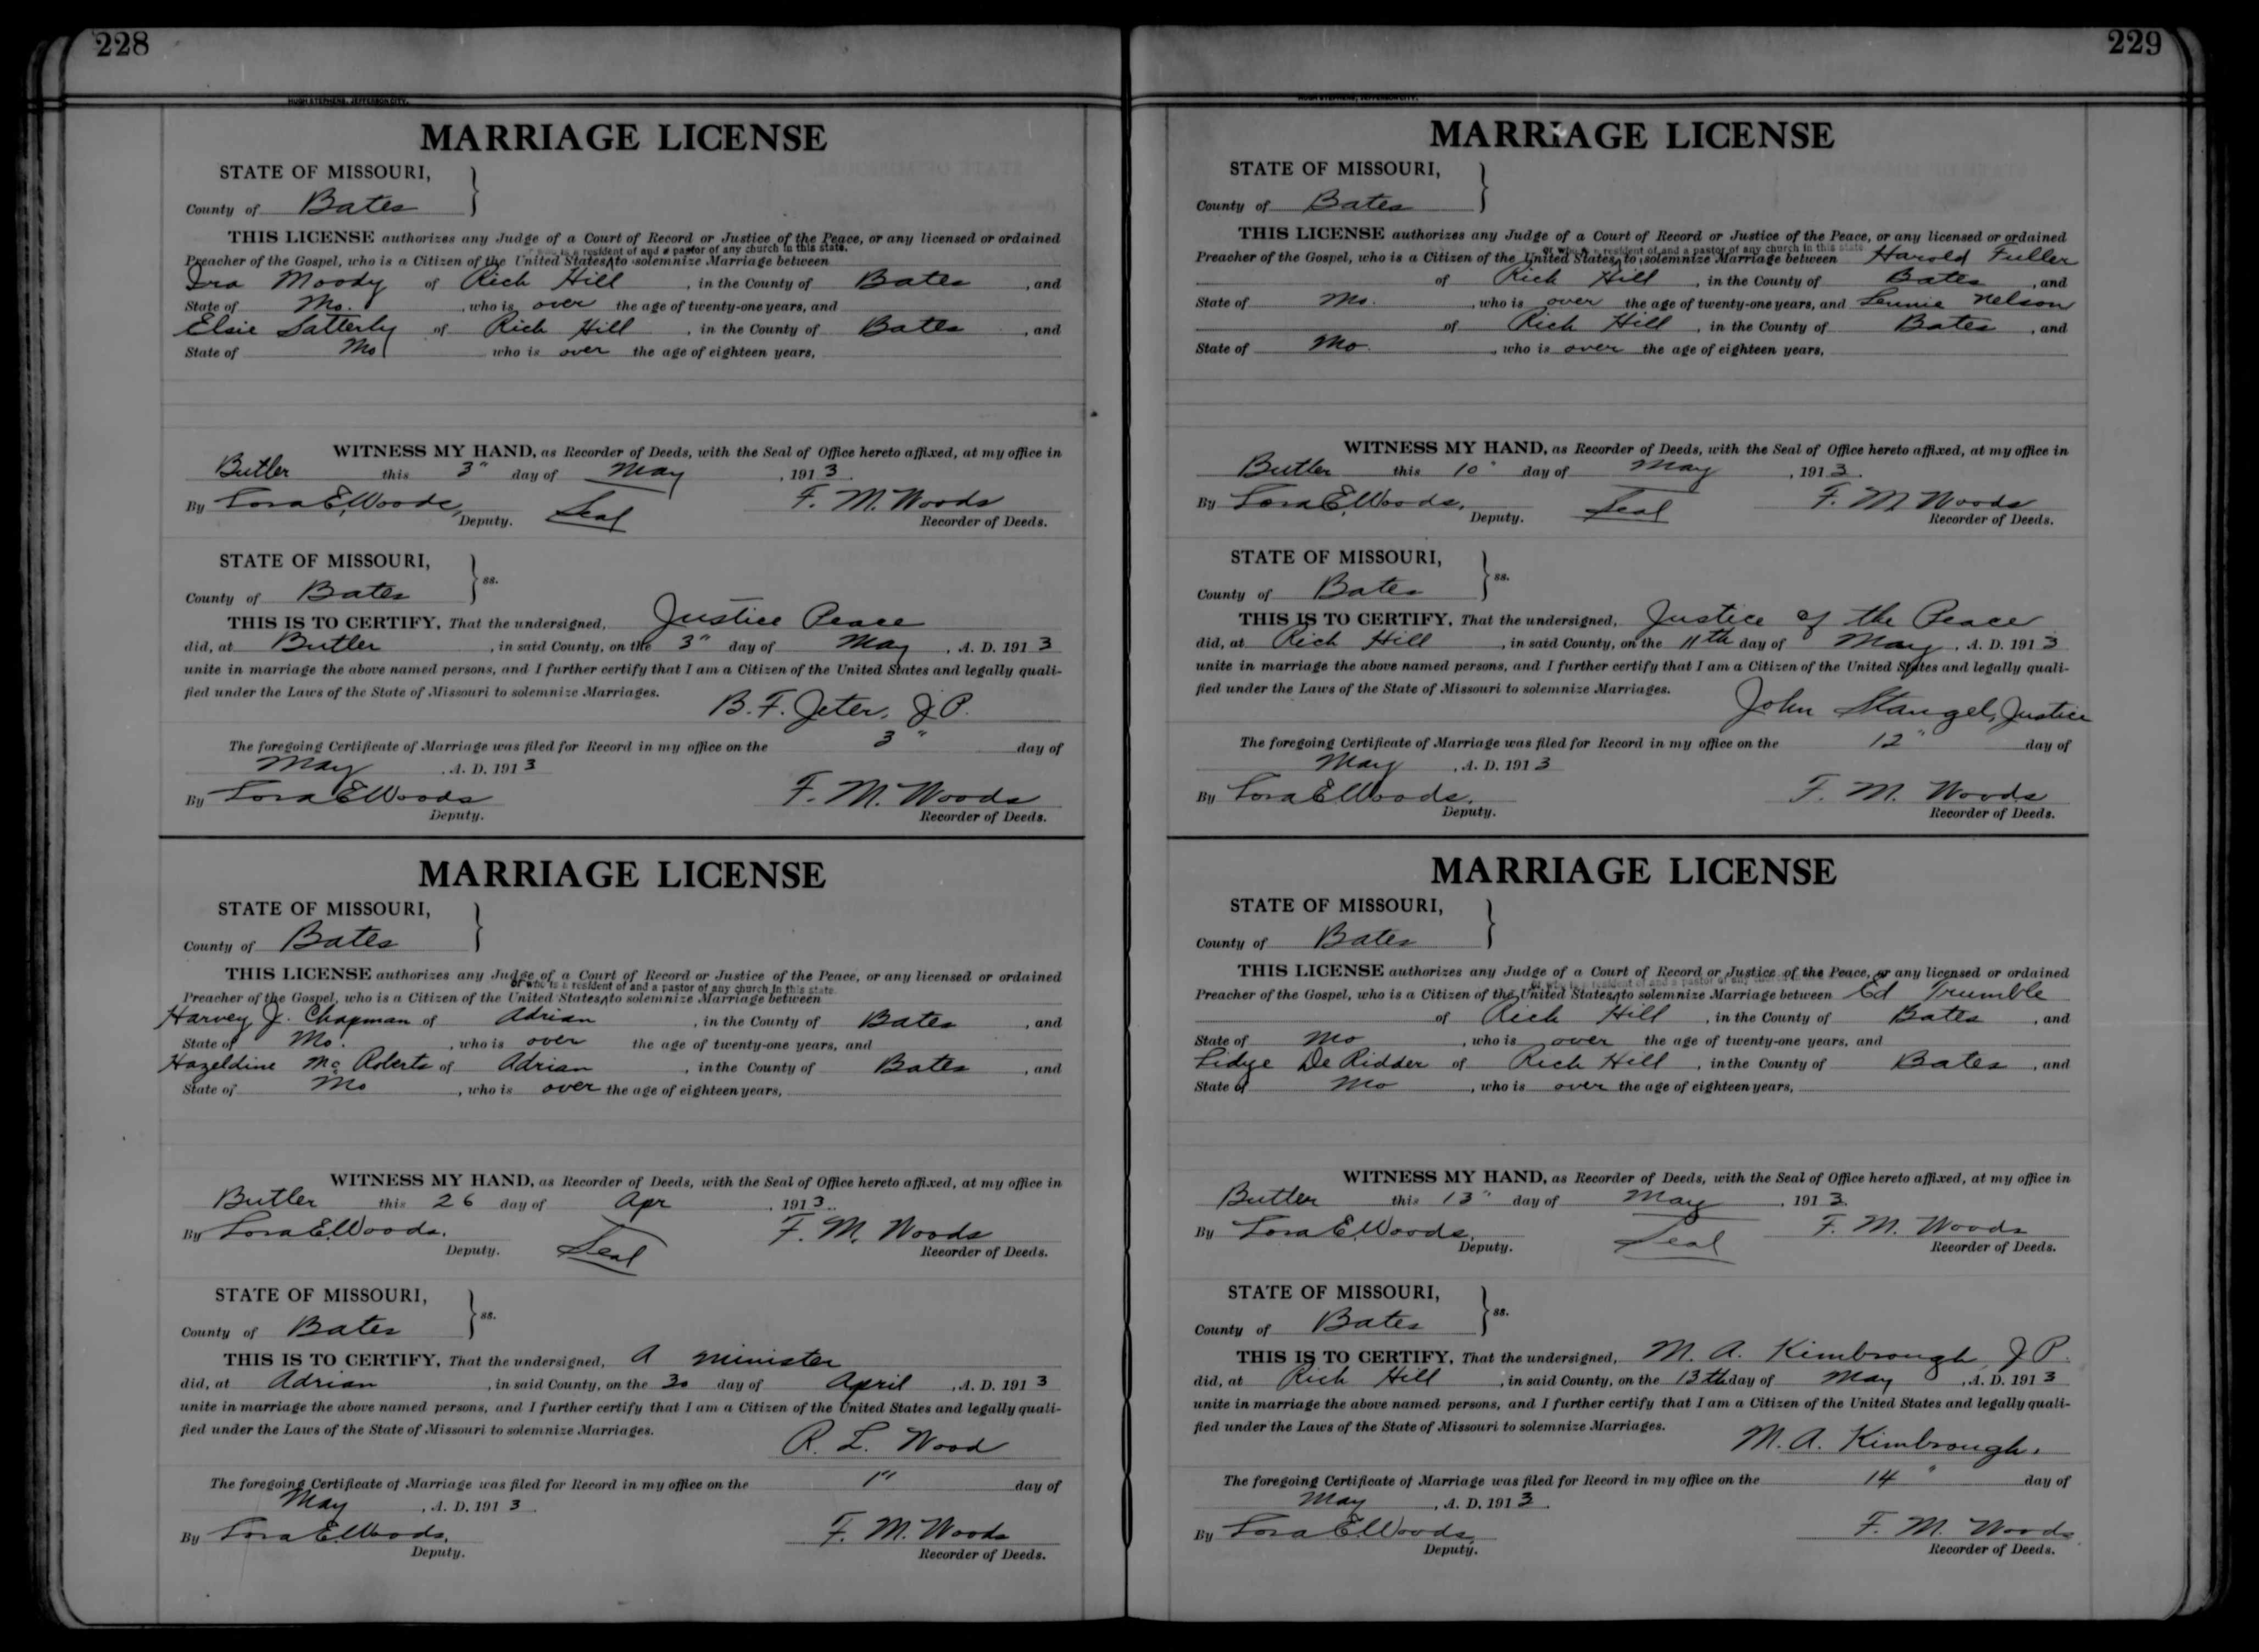 228
HUGH STEPHENS, JEFFERSON CITY.
MARRIAGE LICENSE
STATE OF MISSOURI,
County of Bates
THIS LICENSE authorizes any Judge of a Court of Record or Justice of the Peace, or any licensed or ordained
or who is a resident of and a pastor of any church in this state.
Preacher of the Gospel, who is a Citizen of the United States, to solemnize Marriage between
Ira Moody of Rich Hill, in the County of Bates, and
State of Mo., who is over the age of twenty-one years, and
Elsie Satterly of Rich Hill, in the County of Bates, and
State of Mo who is over the age of eighteen years,
WITNESS MY HAND, as Recorder of Deeds, with the Seal of Office hereto affixed, at my office in
Butler this 3" day of May, 1913.
By Lora E. Woods, Deputy. Seal F. M. Woods
Recorder of Deeds.
STATE OF MISSOURI,
County of Bates ss.
THIS IS TO CERTIFY, That the undersigned, Justice Peace
did, at Butler, in said County, on the 3" day of May, A. D. 1913
unite in marriage the above named persons, and I further certify that I am a Citizen of the United States and legally quali-
fied under the Laws of the State of Missouri to solemnize Marriages.
B. F. Jeter, J. P.
The foregoing Certificate of Marriage was filed for Record in my office on the 3" day of
May, A. D. 1913
By Lora E Woods F. M. Woods
Deputy. Recorder of Deeds.
MARRIAGE LICENSE
STATE OF MISSOURI,
County of Bates
THIS LICENSE authorizes any Judge of a Court of Record or Justice of the Peace, or any licensed or ordained
or who is a resident of and a pastor of any church in this state.
Preacher of the Gospel, who is a Citizen of the United States, to solemnize Marriage between
Harvey J. Chapman of Adrian, in the County of Bates, and
State of Mo., who is over the age of twenty-one years, and
Hazeldine Mc Roberts of Adrian, in the County of Bates, and
State of Mo, who is over the age of eighteen years,
WITNESS MY HAND, as Recorder of Deeds, with the Seal of Office hereto affixed, at my office in
Butler this 26 day of Apr, 1913.
By Lora E. Woods. Seal F. M. Woods
Deputy. Recorder of Deeds.
STATE OF MISSOURI,
County of Bates ss.
THIS IS TO CERTIFY, That the undersigned, A Minister
did, at Adrian, in said County, on the 30 day of April, A. D. 1913
unite in marriage the above named persons, and I further certify that I am a Citizen of the United States and legally quali-
fied under the Laws of the State of Missouri to solemnize Marriages.
R. L. Wood
The foregoing Certificate of Marriage was filed for Record in my office on the 1" day of
May, A. D. 1913.
By Lora E. Woods. F. M. Woods
Deputy. Recorder of Deeds.
229
HUGH STEPHENS, JEFFERSON CITY.
MARRIAGE LICENSE
STATE OF MISSOURI,
County of Bates
THIS LICENSE authorizes any Judge of a Court of Record or Justice of the Peace, or any licensed or ordained
or who is a resident of and a pastor of any church in this state
Preacher of the Gospel, who is a Citizen of the United States, to solemnize Marriage between Harold Fuller
of Rich Hill, in the County of Bates, and
State of Mo., who is over the age of twenty-one years, and Lennie Nelson
of Rich Hill, in the County of Bates, and
State of Mo., who is over the age of eighteen years,
WITNESS MY HAND, as Recorder of Deeds, with the Seal of Office hereto affixed, at my office in
Butler this 10" day of May, 1913.
By Lora E. Woods. Seal F. M Woods
Deputy. Recorder of Deeds.
STATE OF MISSOURI,
County of Bates ss.
THIS IS TO CERTIFY, That the undersigned, Justice of the Peace
did, at Rich Hill, in said County, on the 11th day of May, A. D. 1913
unite in marriage the above named persons, and I further certify that I am a Citizen of the United States and legally quali-
fied under the Laws of the State of Missouri to solemnize Marriages.
John Stangel, Justice
The foregoing Certificate of Marriage was filed for Record in my office on the 12" day of
May, A. D. 1913
By Lora E Woods. F. M. Woods
Deputy. Recorder of Deeds.
MARRIAGE LICENSE
STATE OF MISSOURI,
County of Bates
THIS LICENSE authorizes any Judge of a Court of Record or Justice of the Peace, or any licensed or ordained
or who is a resident of and a pastor of any church
Preacher of the Gospel, who is a Citizen of the United States, to solemnize Marriage between Ed Trumble
of Rich Hill, in the County of Bates, and
State of Mo, who is over the age of twenty-one years, and
Lidge De Ridder of Rich Hill, in the County of Bates, and
State of Mo, who is over the age of eighteen years,
WITNESS MY HAND, as Recorder of Deeds, with the Seal of Office hereto affixed, at my office in
Butler this 13" day of May, 1913.
By Lora E. Woods, Seal F. M. Woods
Deputy. Recorder of Deeds.
STATE OF MISSOURI,
County of Bates ss.
THIS IS TO CERTIFY, That the undersigned, M. A. Kimbrough J P.
did, at Rich Hill, in said County, on the 13th day of May, A. D. 1913
unite in marriage the above named persons, and I further certify that I am a Citizen of the United States and legally quali-
fied under the Laws of the State of Missouri to solemnize Marriages.
M. A. Kimbrough.
The foregoing Certificate of Marriage was filed for Record in my office on the 14" day of
May, A. D. 1913.
By Lora E. Woods, F. M. Woods
Deputy. Recorder of Deeds.